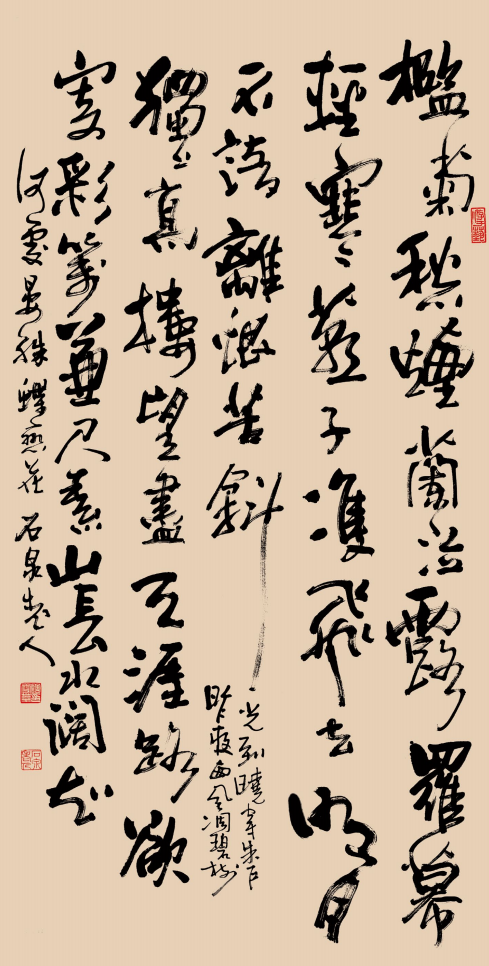 檻菊愁煙蘭泣露羅幕
輕寒燕子雙飛去明月
不諳離恨苦斜
光到曉穿朱戶
昨夜西風凋碧樹
獨上高樓望盡天涯路欲
寄彩箋兼尺素山長水闊知
何處晏殊蝶戀花 石泉人